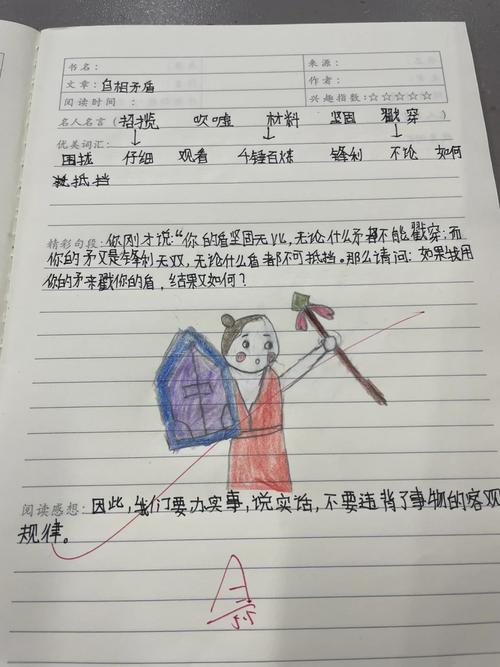 书名: 来源:
文章: 自相矛盾 作者:
阅读时间: 兴趣指数:☆☆☆☆☆
名人名言(招揽 吹嘘 材料 坚固 戳穿)
优美词汇:
围拢 仔细 观看 千锤百炼 锋利 不论 如何
抵挡
精彩句段: 你刚才说:“你的盾坚固无比,无论什么矛都不能戳穿;而
你的矛又是锋利无双,无论什么盾都不可抵挡。那么请问:如果我用
你的矛来戳你的盾,结果又如何?
阅读感想: 因此,我们要办实事,说实话,不要违背了事物的客观
规律。
A
5.5